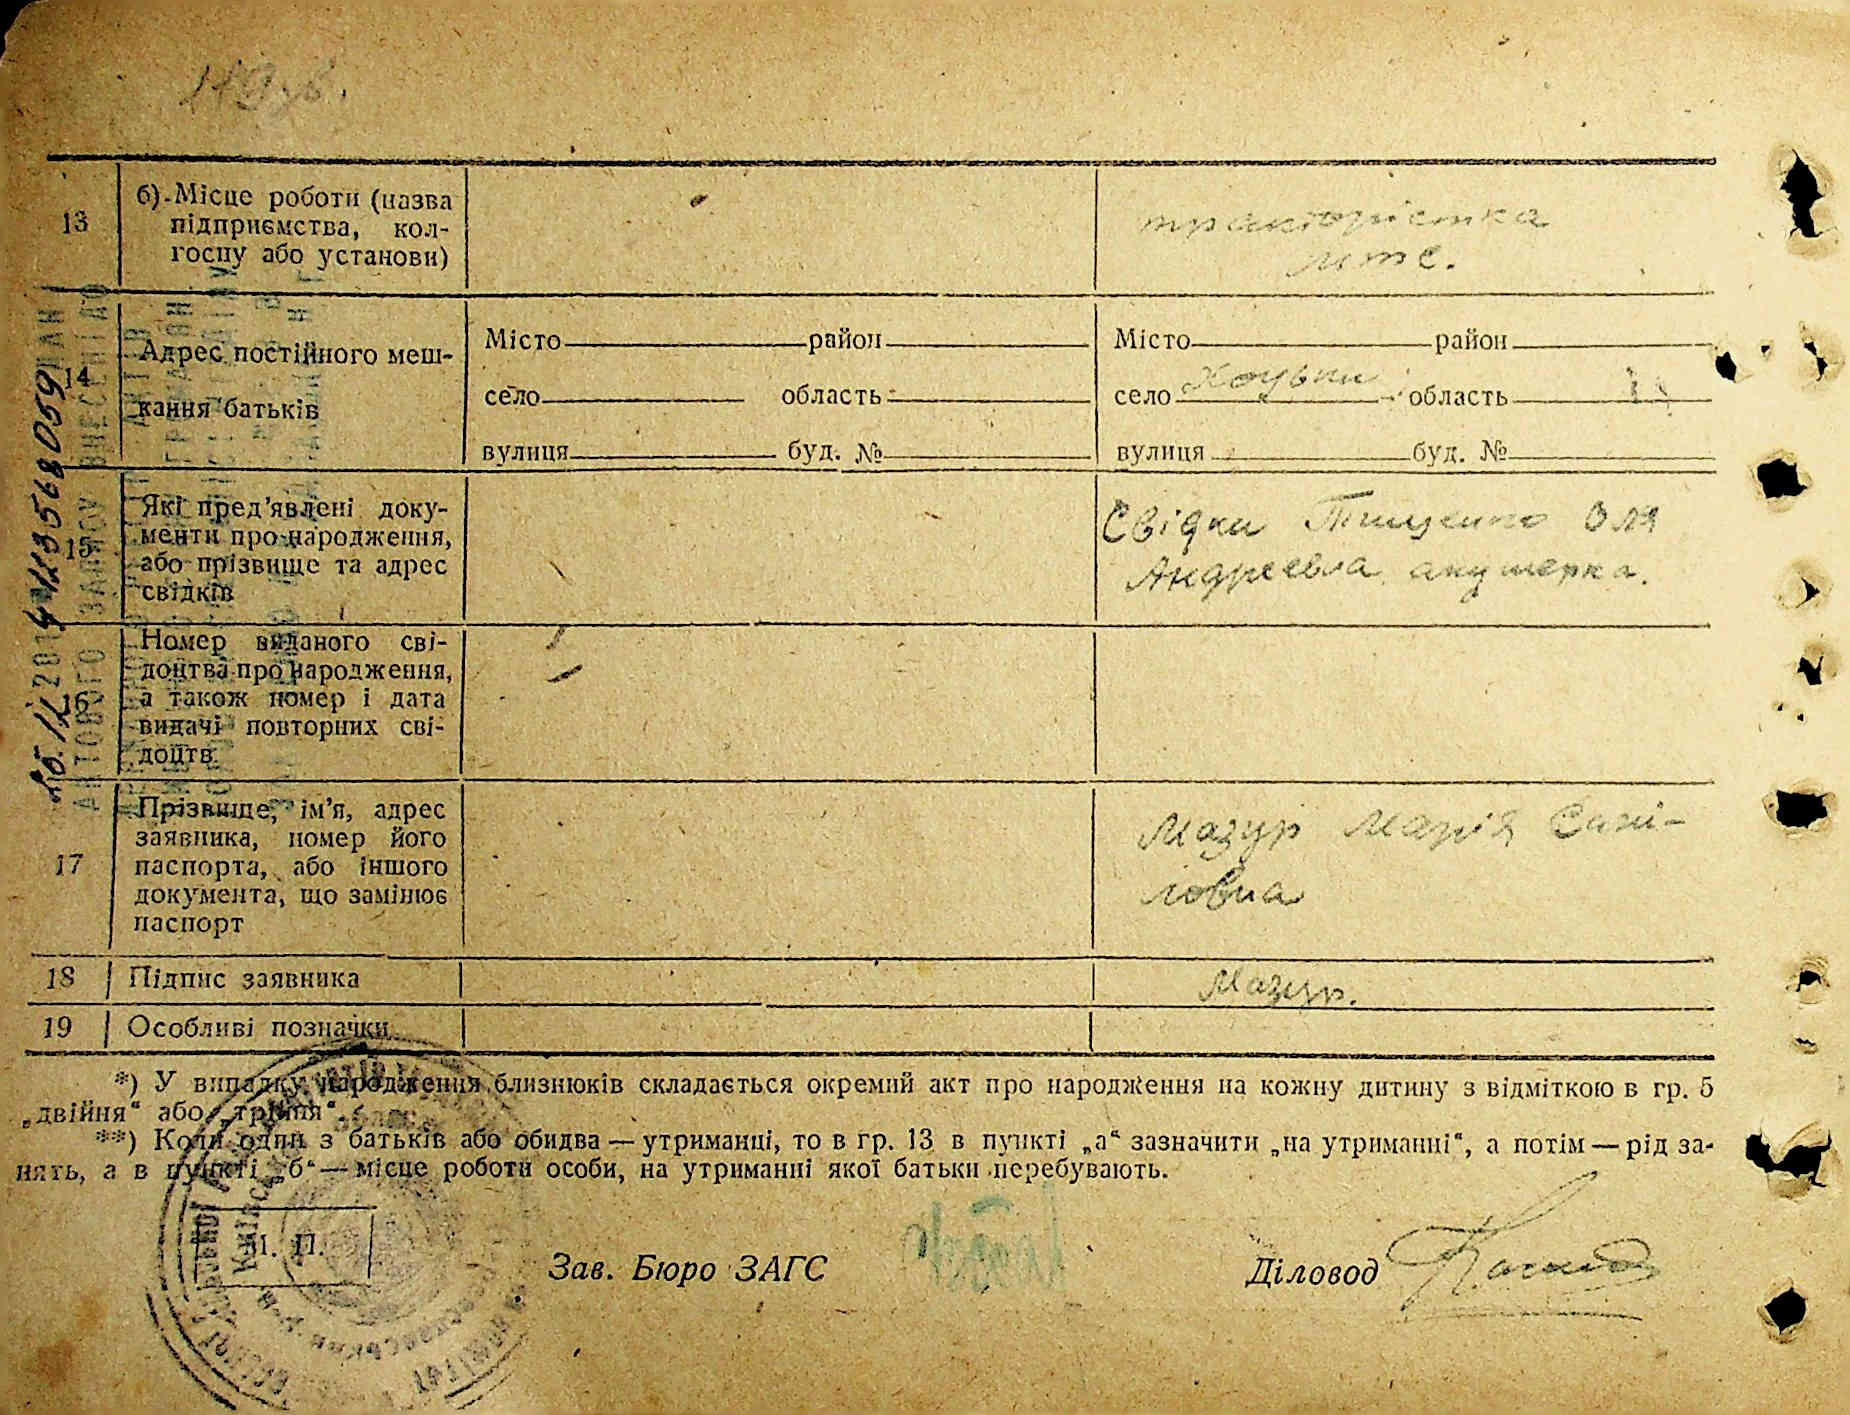 119 зв.
13
б) Місце роботи (назва
підприємства, кол-
госпу або установи)
трактористка
мтс.
14
Адрес постійного меш-
кання батьків
Місто район
село область
вулиця буд. №
Місто район
село Хоцьки область
вулиця буд. №
15
Які пред'явлені доку-
менти про народження,
або прізвище та адрес
свідків
Свідки Тищенко Оля
Андреевна акушерка.
16
Номер виданого сві-
доцтва про народження,
а також номер і дата
видачі повторних сві-
доцтв
17
Прізвище, ім'я, адрес
заявника, номер його
паспорта, або іншого
документа, що замінює
паспорт
Мазур Марія Самі-
ловна
18 Підпис заявника
Мазур.
19 Особливі позначки
*) У випадку народження близнюків складається окремий акт про народження на кожну дитину з відміткою в гр. 5
„двійня“ або „трійня“.
**) Коли один з батьків або обидва — утриманці, то в гр. 13 в пункті „а“ зазначити „на утриманні“, а потім — рід за-
нять, а в пункті „б“ — місце роботи особи, на утриманні якої батьки перебувають.
М. П.
Зав. Бюро ЗАГС
Діловод